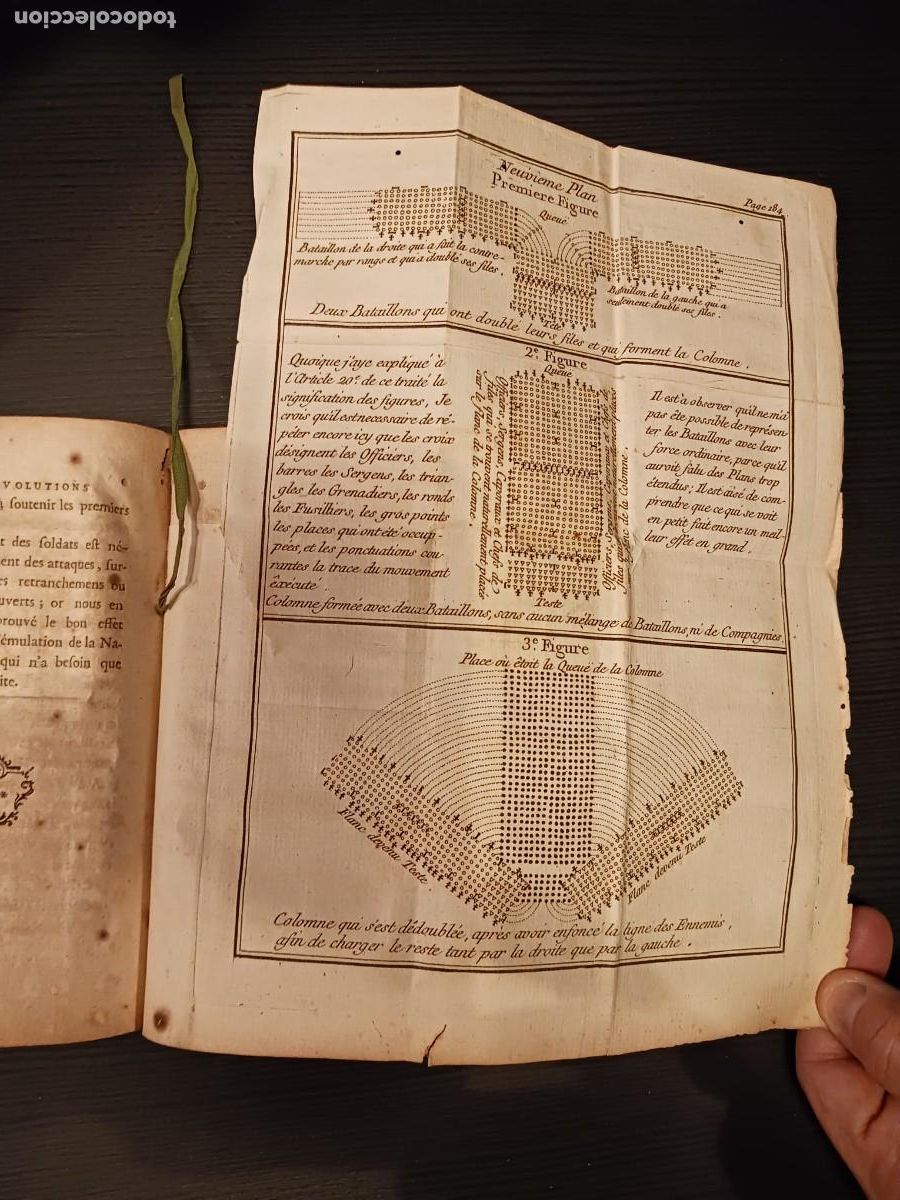 todocoleccion
VOLUTIONS
soutenir les premiers
t des soldats est né-
ent des attaques, sur-
es retranchemens ou
uverts ; or nous en
prouvé le bon effet
émulation de la Na-
qui n'a besoin que
ite.
Neuvieme Plan
Page 184
Premiere Figure
Queue
Bataillon de la droite qui a fait la contre-
marche par rangs et qui a doublé ses files.
Bataillon de la gauche qui a
seulement doublé ses files.
Teste
Deux Bataillons qui ont doublé leurs files et qui forment la Colonne.
2.e Figure
Queue
Quoique j'aye expliqué à
l'Article 20.e de ce traité la
signification des figures, Je
crois qu'il est necessaire de ré-
péter encore icy que les croix
désignent les Officiers, les
barres les Sergens, les trian-
gles les Grenadiers, les ronds
les Fusilliers, les gros points
les places qui ont été occup-
pées, et les ponctuations cou-
rantes la trace du mouvement
éxécuté
Officiers, Sergens, Caporaux et Chefs de
files qui se trouvent naturellement placés
sur le flanc de la Colonne.
Officiers, Sergens, Caporaux et Chefs de
files
de la Colonne.
Il est à observer qu'il ne m'a
pas éte possible de représen
ter les Bataillons avec leur
force ordinaire, parce qu'il
auroit falu des Plans trop
étendus; Il est aisé de com-
prendre que ce qui se voit
en petit fait encore un meil-
leur effet en grand.
Teste
Colonne formée avec deux Bataillons, sans aucun mélange de Bataillons, ni de Compagnies.
3.e Figure
Place où étoit la Queue de la Colonne
Flanc devenu Teste
Flanc devenu Teste
Colonne qui s'est dédoublée, après avoir enfoncé la ligne des Ennemis,
afin de charger le reste tant par la droite que par la gauche.